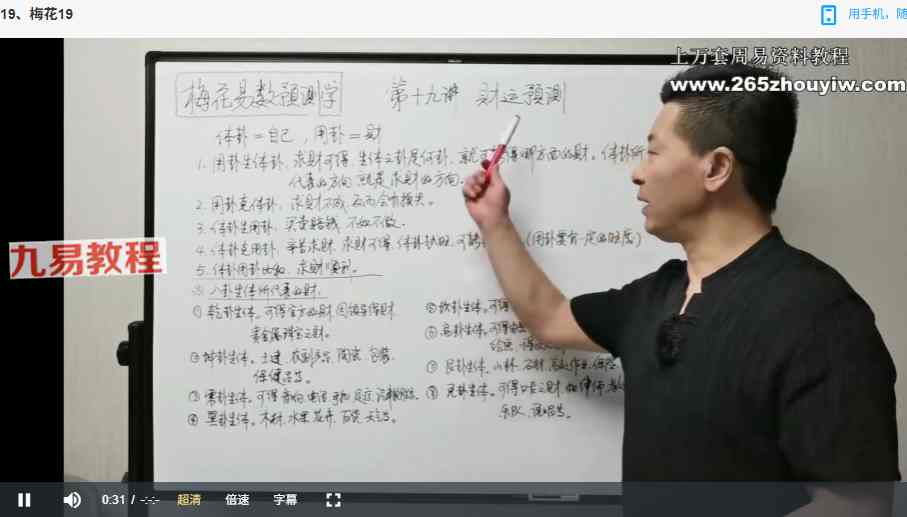 19、梅花19
用手机，随
上万套周易资料教程
www.265zhouyiw.com
梅花易数预测学 第十九讲 财运预测
体卦=自己，用卦=财
1. 用卦生体卦，求财可得，生体之卦是何卦，就 得哪方面的财。体卦所
代表的方向就是求财的方向。
2. 用卦克体卦，求财不成，反而会有损失。
3. 体卦生用卦，买卖赔钱，不如不做。
4. 体卦克用卦，辛苦求财，求财可得，体卦 旺，可 (用卦要有一定的旺度)
5. 体卦用卦比和，求财顺利。
九易教程
※ 八卦生体所代表的财：
① 乾卦生体，可得官方的财，因领导得财
黄金珠宝之财。
② 坤卦生体，土建，农副产品，陶瓷，包装，
保健品等。
③ 震卦生体，可得音响，电话，
④ 巽卦生体，木材，水果，花卉，百货，
⑤ 坎卦生体，可得
⑥ 离卦生体，可得
⑦ 艮卦生体，山林，石材，
⑧ 兑卦生体，可得口才之财，如律师，
乐队，演唱等。
0:31 / -:-:-
超清
倍速
字幕